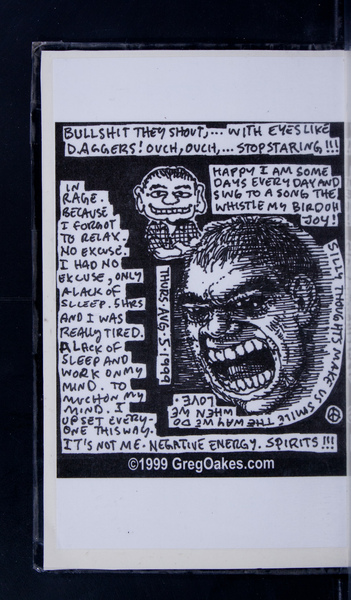 BULLSHIT THEY SHOUT,... WITH EYES LIKE
DAGGERS! OUCH, OUCH,... STOP STARING!!!
HAPPY I AM SOME
DAYS EVERY DAY AND
SING TO A SONG THE
WHISTLE MY BIRDOH
JOY!
IN
RAGE.
BECAUSE
I FORGOT
TO RELAX.
NO EXCUSE.
I HAD NO
EXCUSE, ONLY
A LACK OF
SLEEP. 5HRS
AND I WAS
REALLY TIRED.
A LACK OF
SLEEP AND
WORK ON MY
MIND. TO
MUCH ON MY
MIND. I
UPSET EVERY-
ONE THIS WAY.
IT'S NOT ME. NEGATIVE ENERGY. SPIRITS!!!
THURS AUG-5-1999
SILLY THOUGHTS MAKE US SMILE
THE WAY WE DO
WHEN WE
LOVE.
©1999 GregOakes.com